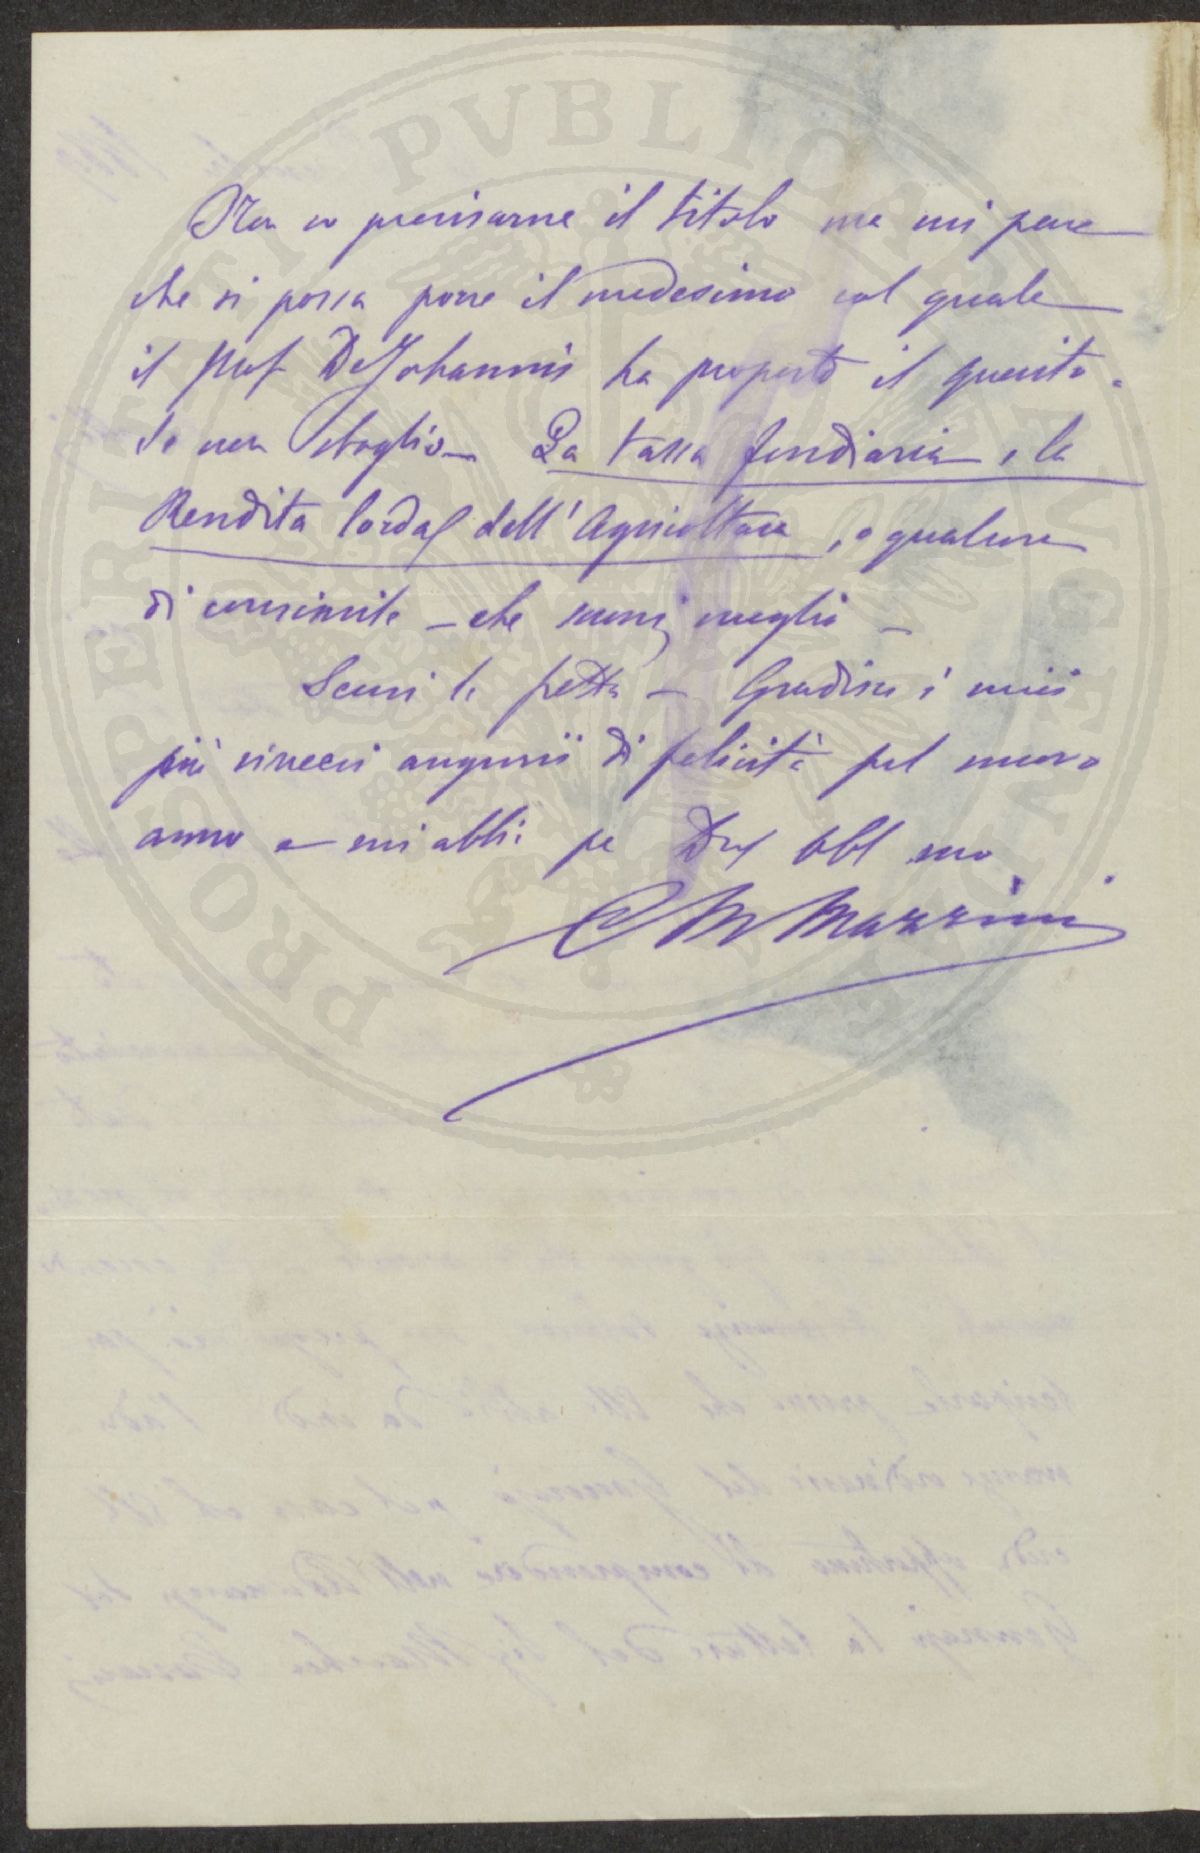 Non so precisarne il titolo ma mi pare
che si possa porre il medesimo col quale
il Prof DeJohannis ha proposto il quesito.
Se non sbaglio – La tassa fondiaria e la
Rendita lorda dell'Agricoltura, o qualcosa
di consimile – che suoni meglio –
Scusi la fretta – Gradisca i miei
più sinceri augurii di felicità pel nuovo
anno e mi abbia pe Obbl mo
C M Mazzini
PROSPERITATI PVBLICAE AVGENDAE